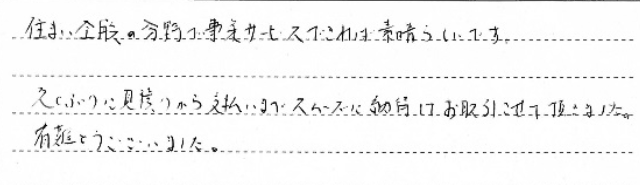 住まい全般の分野で事業サービスでこれは素晴らしいです。
久しぶりに見積りから支払いまでスムーズに納得してお取引させて頂きました。
有難とうございました。